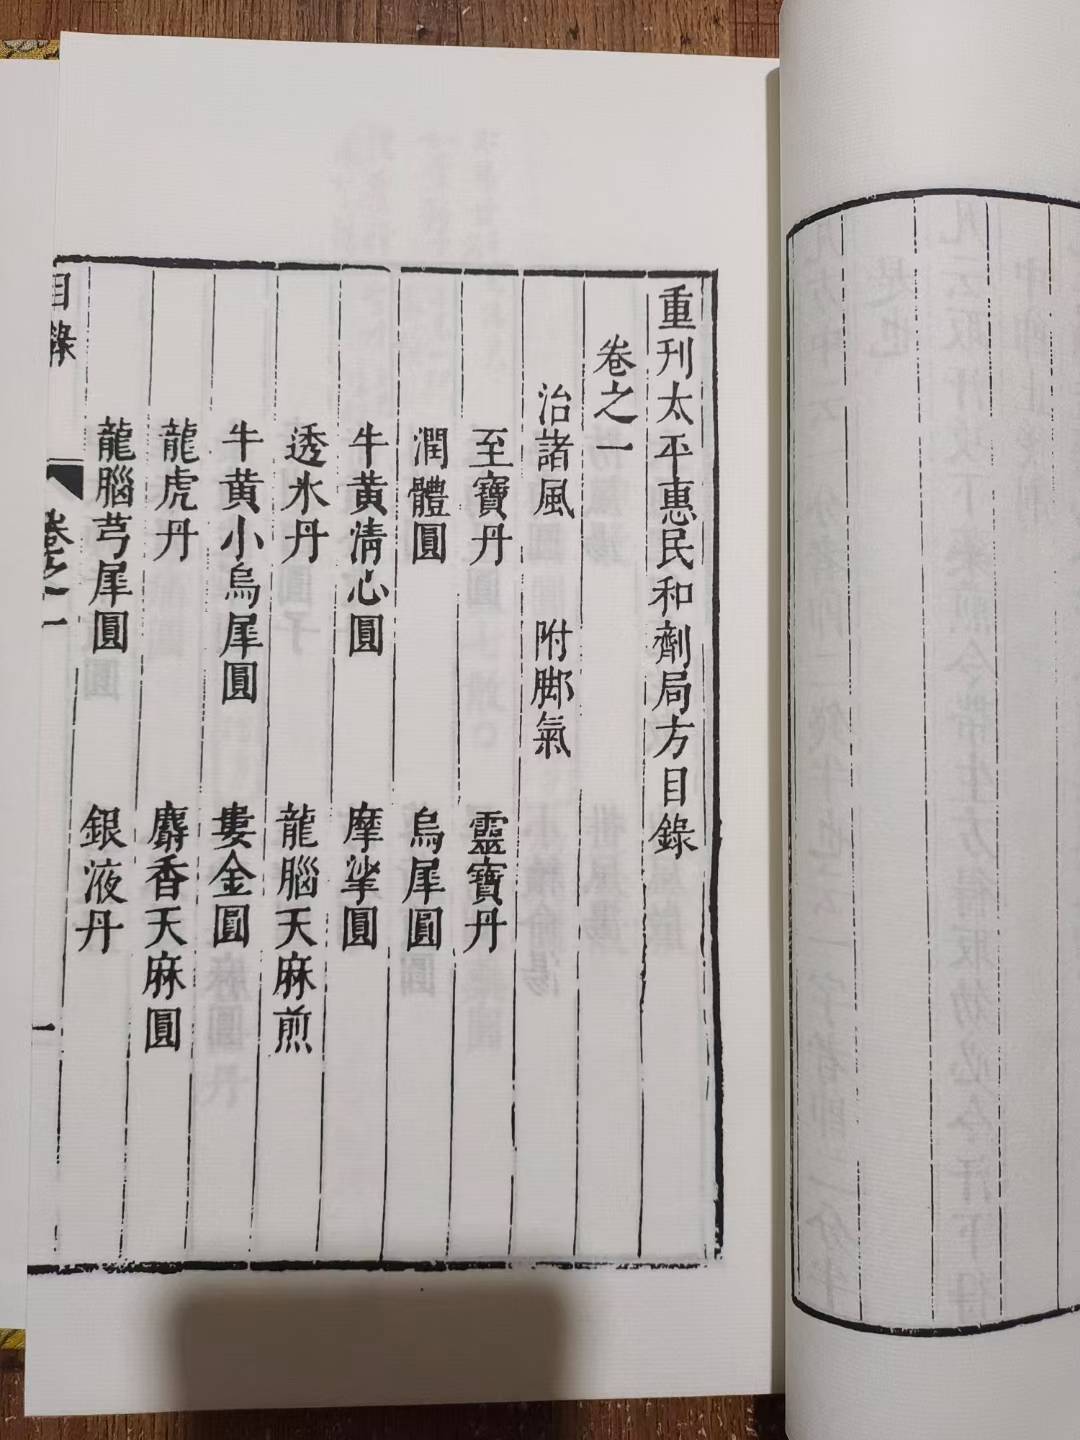 重刊太平惠民和劑局方目錄
卷之一
治諸風 附脚氣
至寶丹 靈寶丹
潤體圓 烏犀圓
牛黃清心圓 摩挲圓
透氷丹 龍腦天麻煎
牛黃小烏犀圓 婁金圓
龍虎丹 麝香天麻圓
龍腦芎犀圓 銀液丹
目錄 卷之一 一